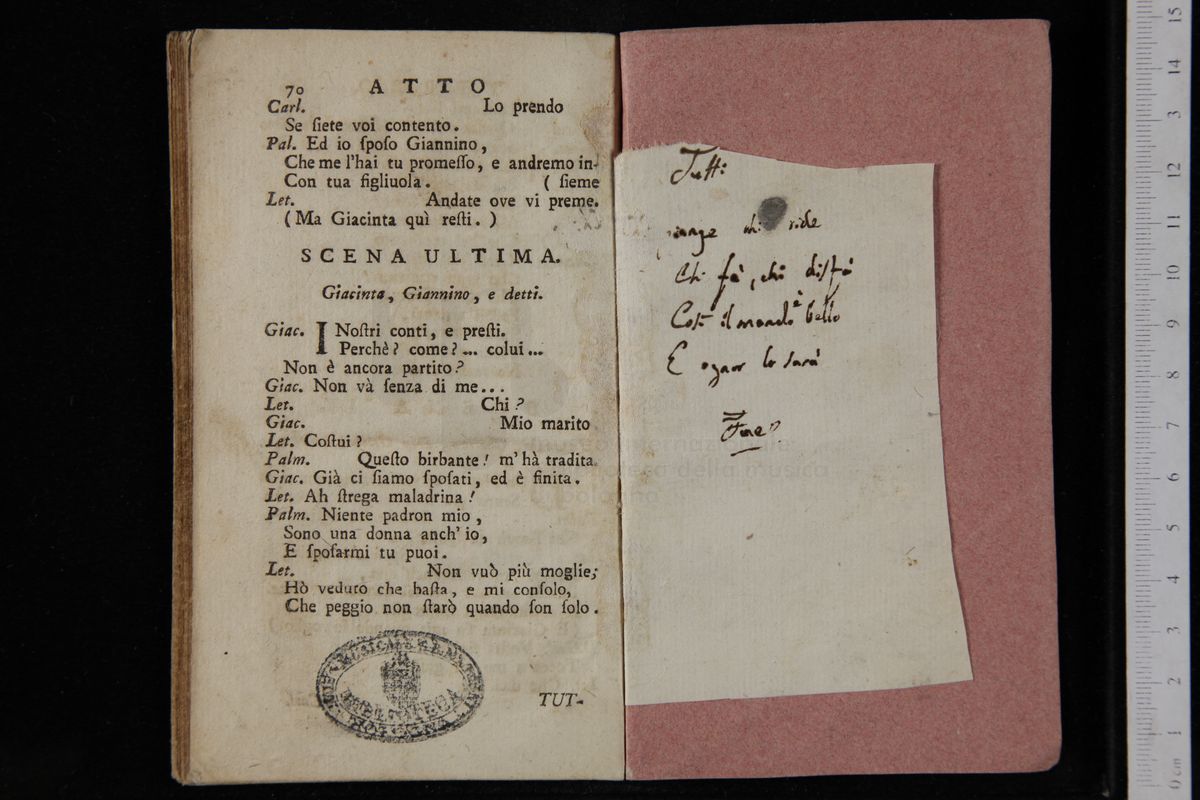 70 ATTO
Carl. Lo prendo
Se ſiete voi contento.
Pal. Ed io ſpoſo Giannino,
Che me l'hai tu promeſſo, e andremo in-
Con tua figliuola. ( ſieme
Let. Andate ove vi preme.
(Ma Giacinta quì reſti. )
SCENA ULTIMA.
Giacinta, Giannino, e detti.
Giac. I Noſtri conti, e preſti.
Perchè? come? ... colui ...
Non è ancora partito?
Giac. Non và ſenza di me...
Let. Chi?
Giac. Mio marito
Let. Coſtui?
Palm. Queſto birbante! m'hà tradita.
Giac. Già ci ſiamo ſpoſati, ed è finita.
Let. Ah ſtrega maladrina!
Palm. Niente padron mio,
Sono una donna anch' io,
E ſpoſarmi tu puoi.
Let. Non vuò più moglie;
Hò veduto che baſta, e mi conſolo,
Che peggio non ſtarò quando ſon ſolo.
TUT-
Tutti
piange chi ride
Chi fà, chi disfà
Così il mondo è bello
E ognor lo sarà
Fine
museo internazionale
biblioteca della musica
di bologna
0 cm 1 2 3 4 5 6 7 8 9 10 11 12 13 14 15